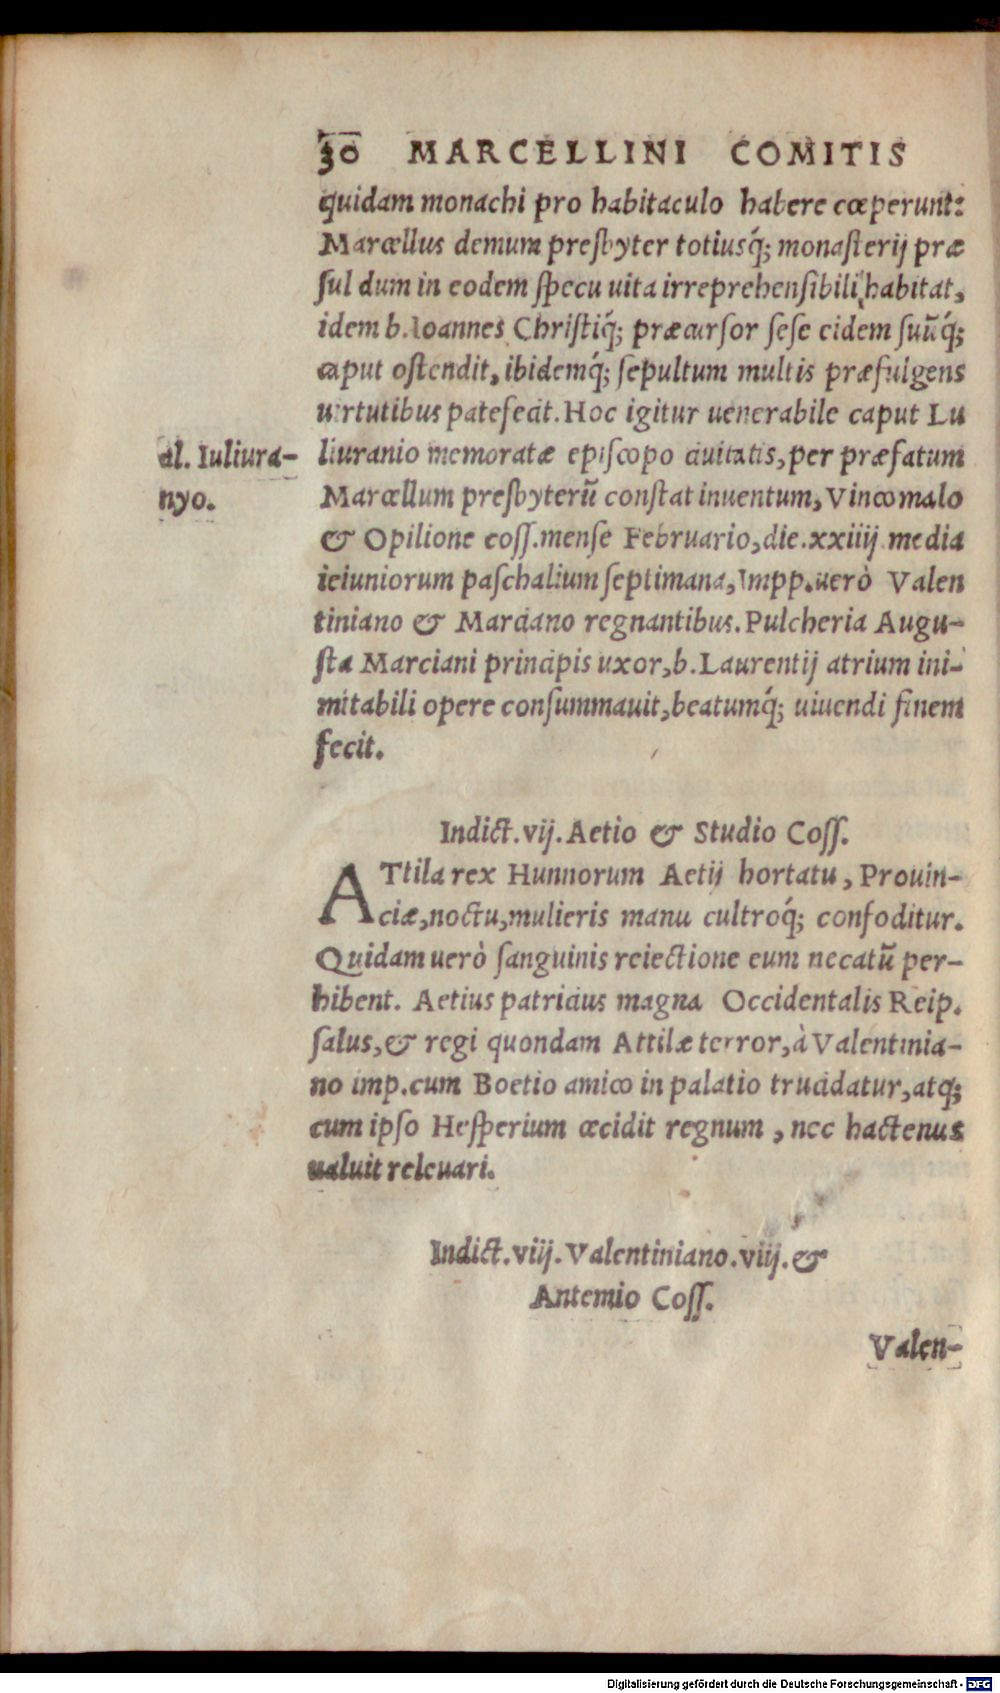 30 MARCELLINI COMITIS
quidam monachi pro habitaculo habere cœperunt:
Marcellus demum presbyter totiusq́; monasterij præ
sul dum in eodem specu uita irreprehensibili habitat,
idem b. Ioannes Christiq́; præcursor sese eidem suũq́;
caput ostendit, ibidemq́; sepultum multis præfulgens
uirtutibus patefecit. Hoc igitur uenerabile caput Lu
al. Iuliura-
nyo.
liuranio memoratæ episcopo ciuitatis, per præfatum
Marcellum presbyterũ constat inuentum, Vincomalo
& Opilione coss. mense Februario, die. xxiiij. media
ieiuniorum paschalium septimana, Impp. uerò Valen
tiniano & Marciano regnantibus. Pulcheria Augu-
sta Marciani principis uxor, b. Laurentij atrium ini-
mitabili opere consummauit, beatumq́; uiuendi finem
fecit.
Indict. vij. Aetio & Studio Coss.
ATtila rex Hunnorum Aetij hortatu, Prouin-
ciæ, noctu, mulieris manu cultroq́; confoditur.
Quidam uerò sanguinis reiectione eum necatũ per-
hibent. Aetius patricius magna Occidentalis Reip.
salus, & regi quondam Attilæ terror, à Valentinia-
no imp. cum Boetio amico in palatio trucidatur, atq;
cum ipso Hesperium cecidit regnum, nec hactenus
ualuit releuari.
Indict. viij. Valentiniano. viij. &
Antemio Coss.
Valen-
Digitalisierung gefördert durch die Deutsche Forschungsgemeinschaft - DFG